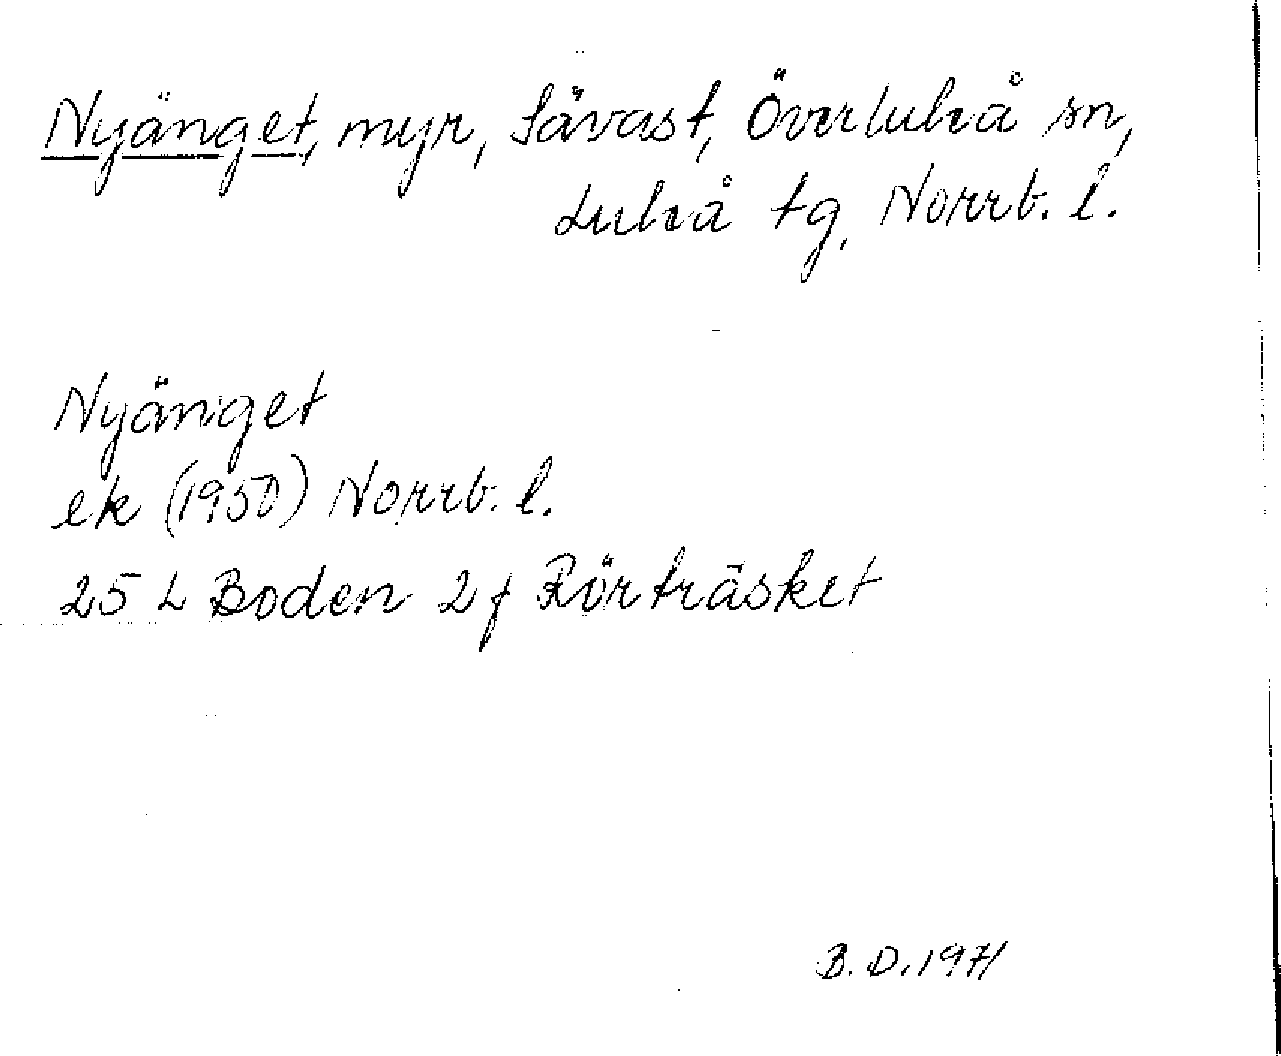 Nyänget, myr, Sävast, Överluleå sn,
Luleå tg, Norrb. l.
Nyänget
ek (1950) Norrb. l.
25 L Boden 2 f Rörträsket
B. D. 1971